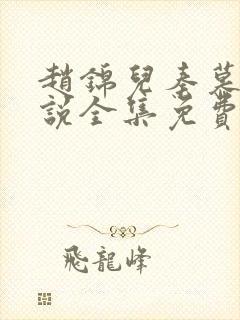 趙錦兒秦慕
說全集免費
飛龍峰